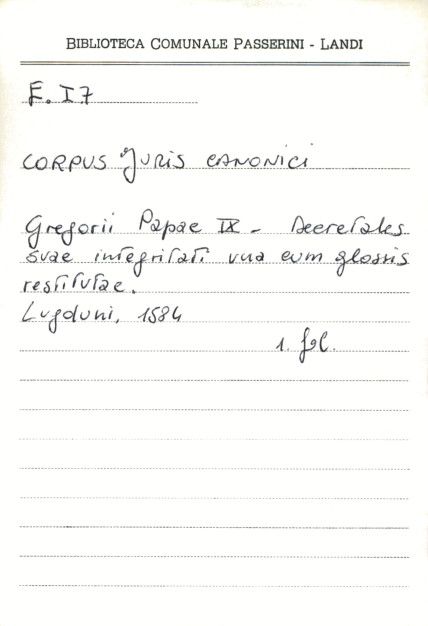 BIBLIOTECA COMUNALE PASSERINI - LANDI
E. I 7
CORPUS JURIS CANONICI
Gregorii Papae IX - Decretales
suae integritati una cum glossis
restitutae.
Lugduni, 1584
1. fol.